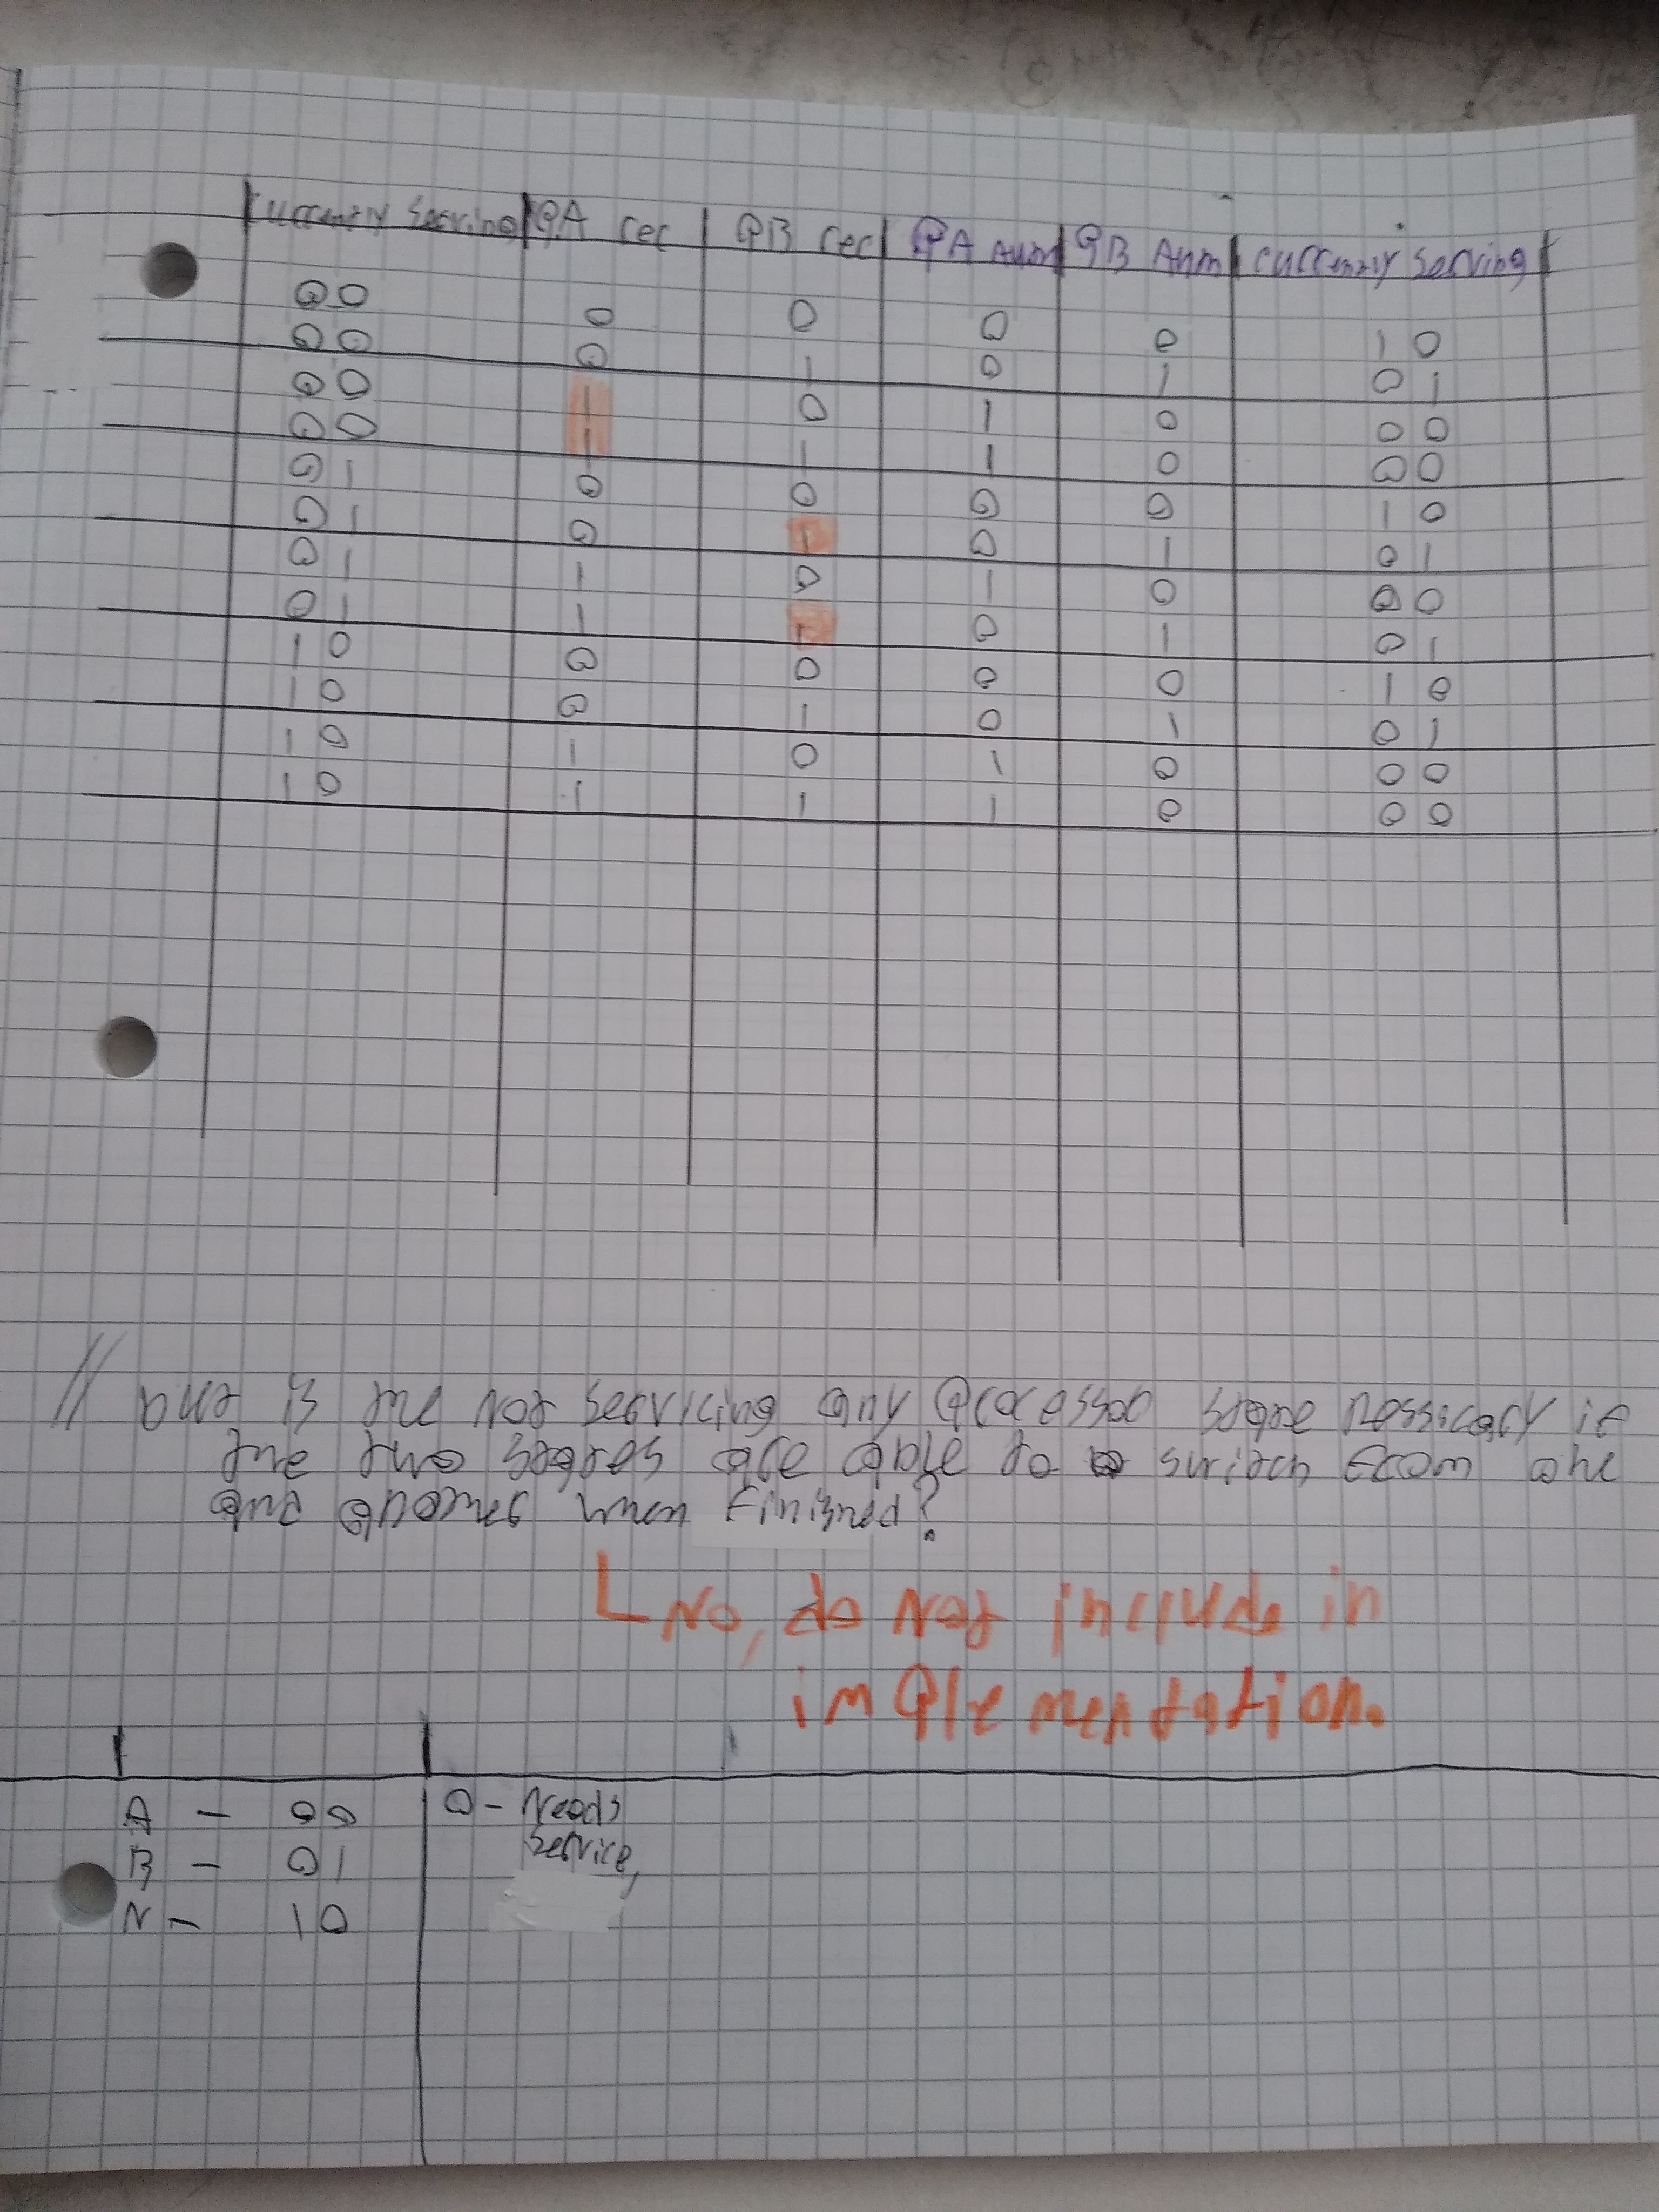 Currently Serving | QA rec | QB rec | QA Aum | QB Aum | Currently Serving
00 0 0 0 0 10
00 0 1 0 1 01
00 1 0 1 0 00
00 1 1 1 0 00
01 0 0 0 0 10
01 0 1 0 1 01
01 1 0 1 0 00
01 1 1 0 1 01
10 0 0 0 0 10
10 0 1 0 1 01
10 1 0 1 0 00
10 1 1 1 0 00
// but is the not servicing any processor state nessicary if
the two states are able to switch from one
and another when finished?
No, do not include in
implementation.
A - 00 0 - Needs
service,
B - 01
N - 10